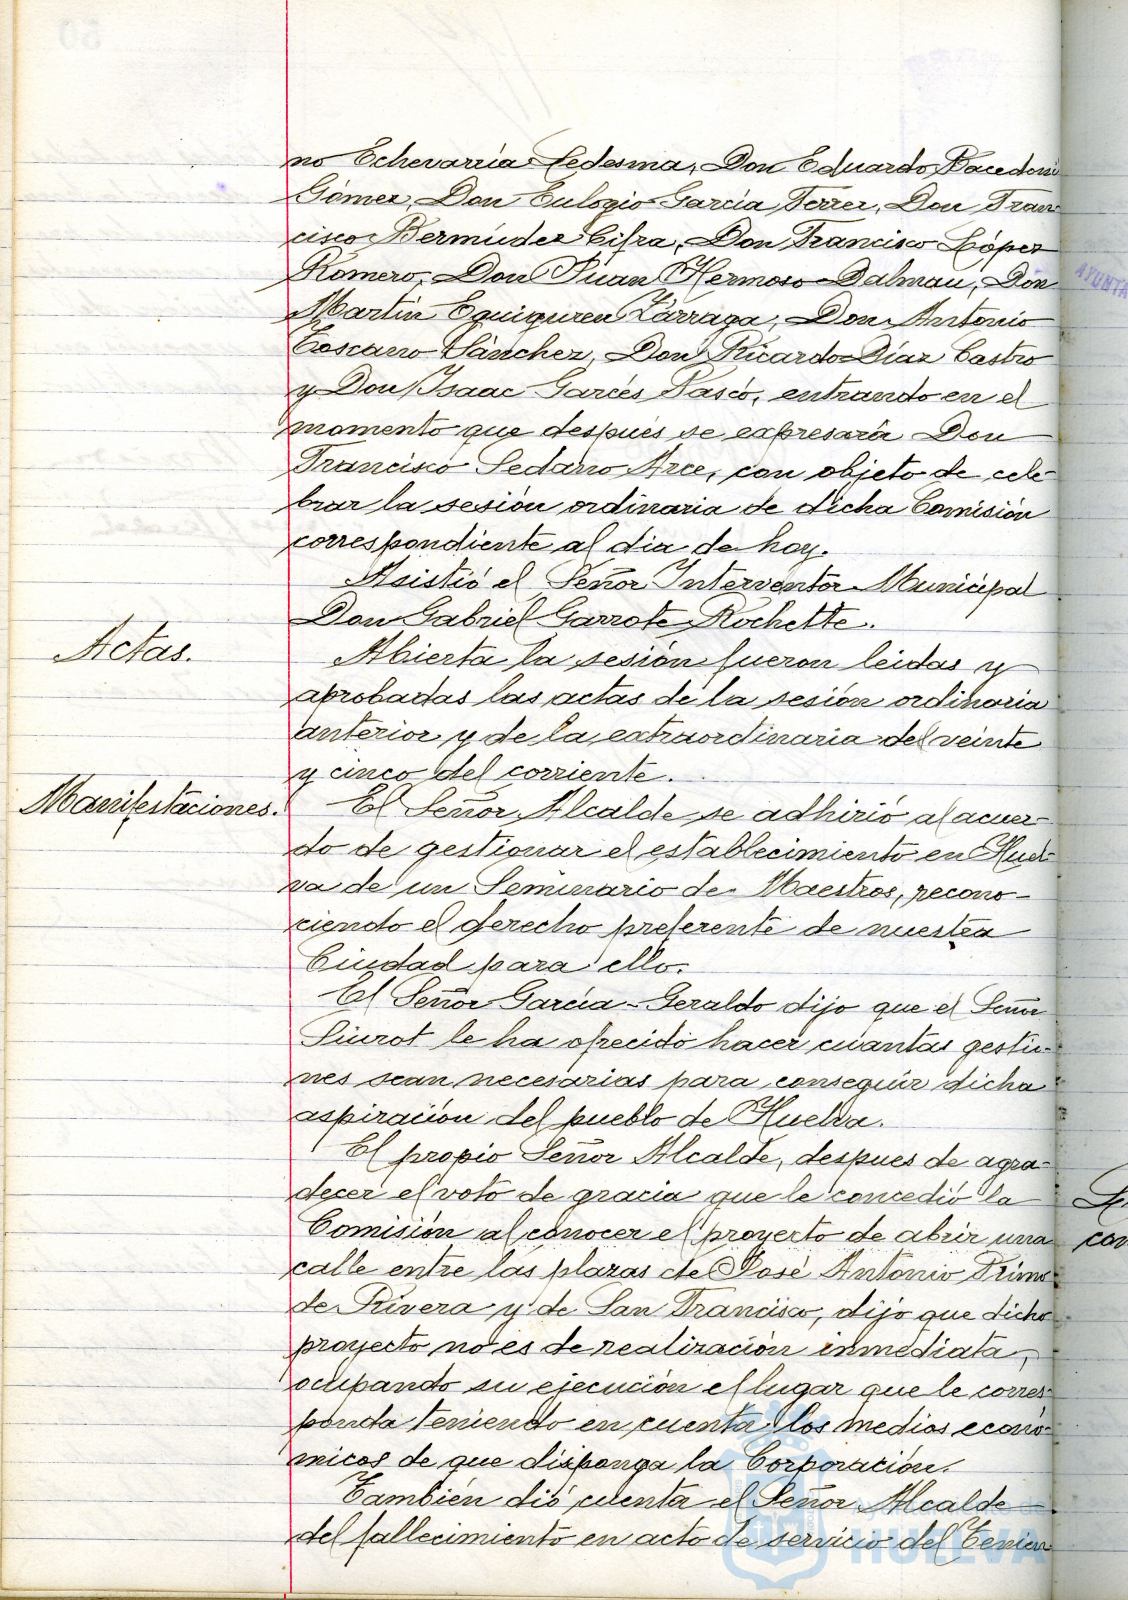 no Echevarría Ledesma, Don Eduardo
Gómez, Don Eulogio García Ferrer, Don Fran-
cisco Bermúdez Cifra, Don Francisco López
Romero, Don Juan Hermoso Dalmau, Don
Martín Eguiguren Zárraga, Don Antonio
Toscano Sánchez, Don Ricardo Díaz Castro
y Don Isaac Garcés Pascó, entrando en el
momento que después se expresará Don
Francisco Sedano Arce, con objeto de cele-
brar la sesión ordinaria de dicha Comisión
correspondiente al día de hoy.
Asistió el Señor Interventor Municipal
Don Gabriel Garrote Rochette.
Actas.
Abierta la sesión fueron leidas y
aprobadas las actas de la sesión ordinaria
anterior y de la extraordinaria del veinte
y cinco del corriente.
Manifestaciones.
El Señor Alcalde se adhirió al acuer-
do de gestionar el establecimiento en Huel-
va de un Seminario de Maestros, recono-
ciendo el derecho preferente de nuestra
Ciudad para ello.
El Señor García-Geraldo dijo que el Señor
Siurot le ha ofrecido hacer cuantas gestio-
nes sean necesarias para conseguir dicha
aspiración del pueblo de Huelva.
El propio Señor Alcalde, despues de agra-
decer el voto de gracia que le concedió la
Comisión al conocer el proyecto de abrir una
calle entre las plazas de José Antonio Primo
de Rivera y de San Francisco, dijo que dicho
proyecto no es de realización inmediata,
ocupando su ejecución el lugar que le corres-
ponda teniendo en cuenta los medios econó-
micos de que disponga la Corporación.
También dió cuenta el Señor Alcalde
del fallecimiento en acto de servicio del Tenien
AYUNTA
con
Ayuntamiento de
HUELVA